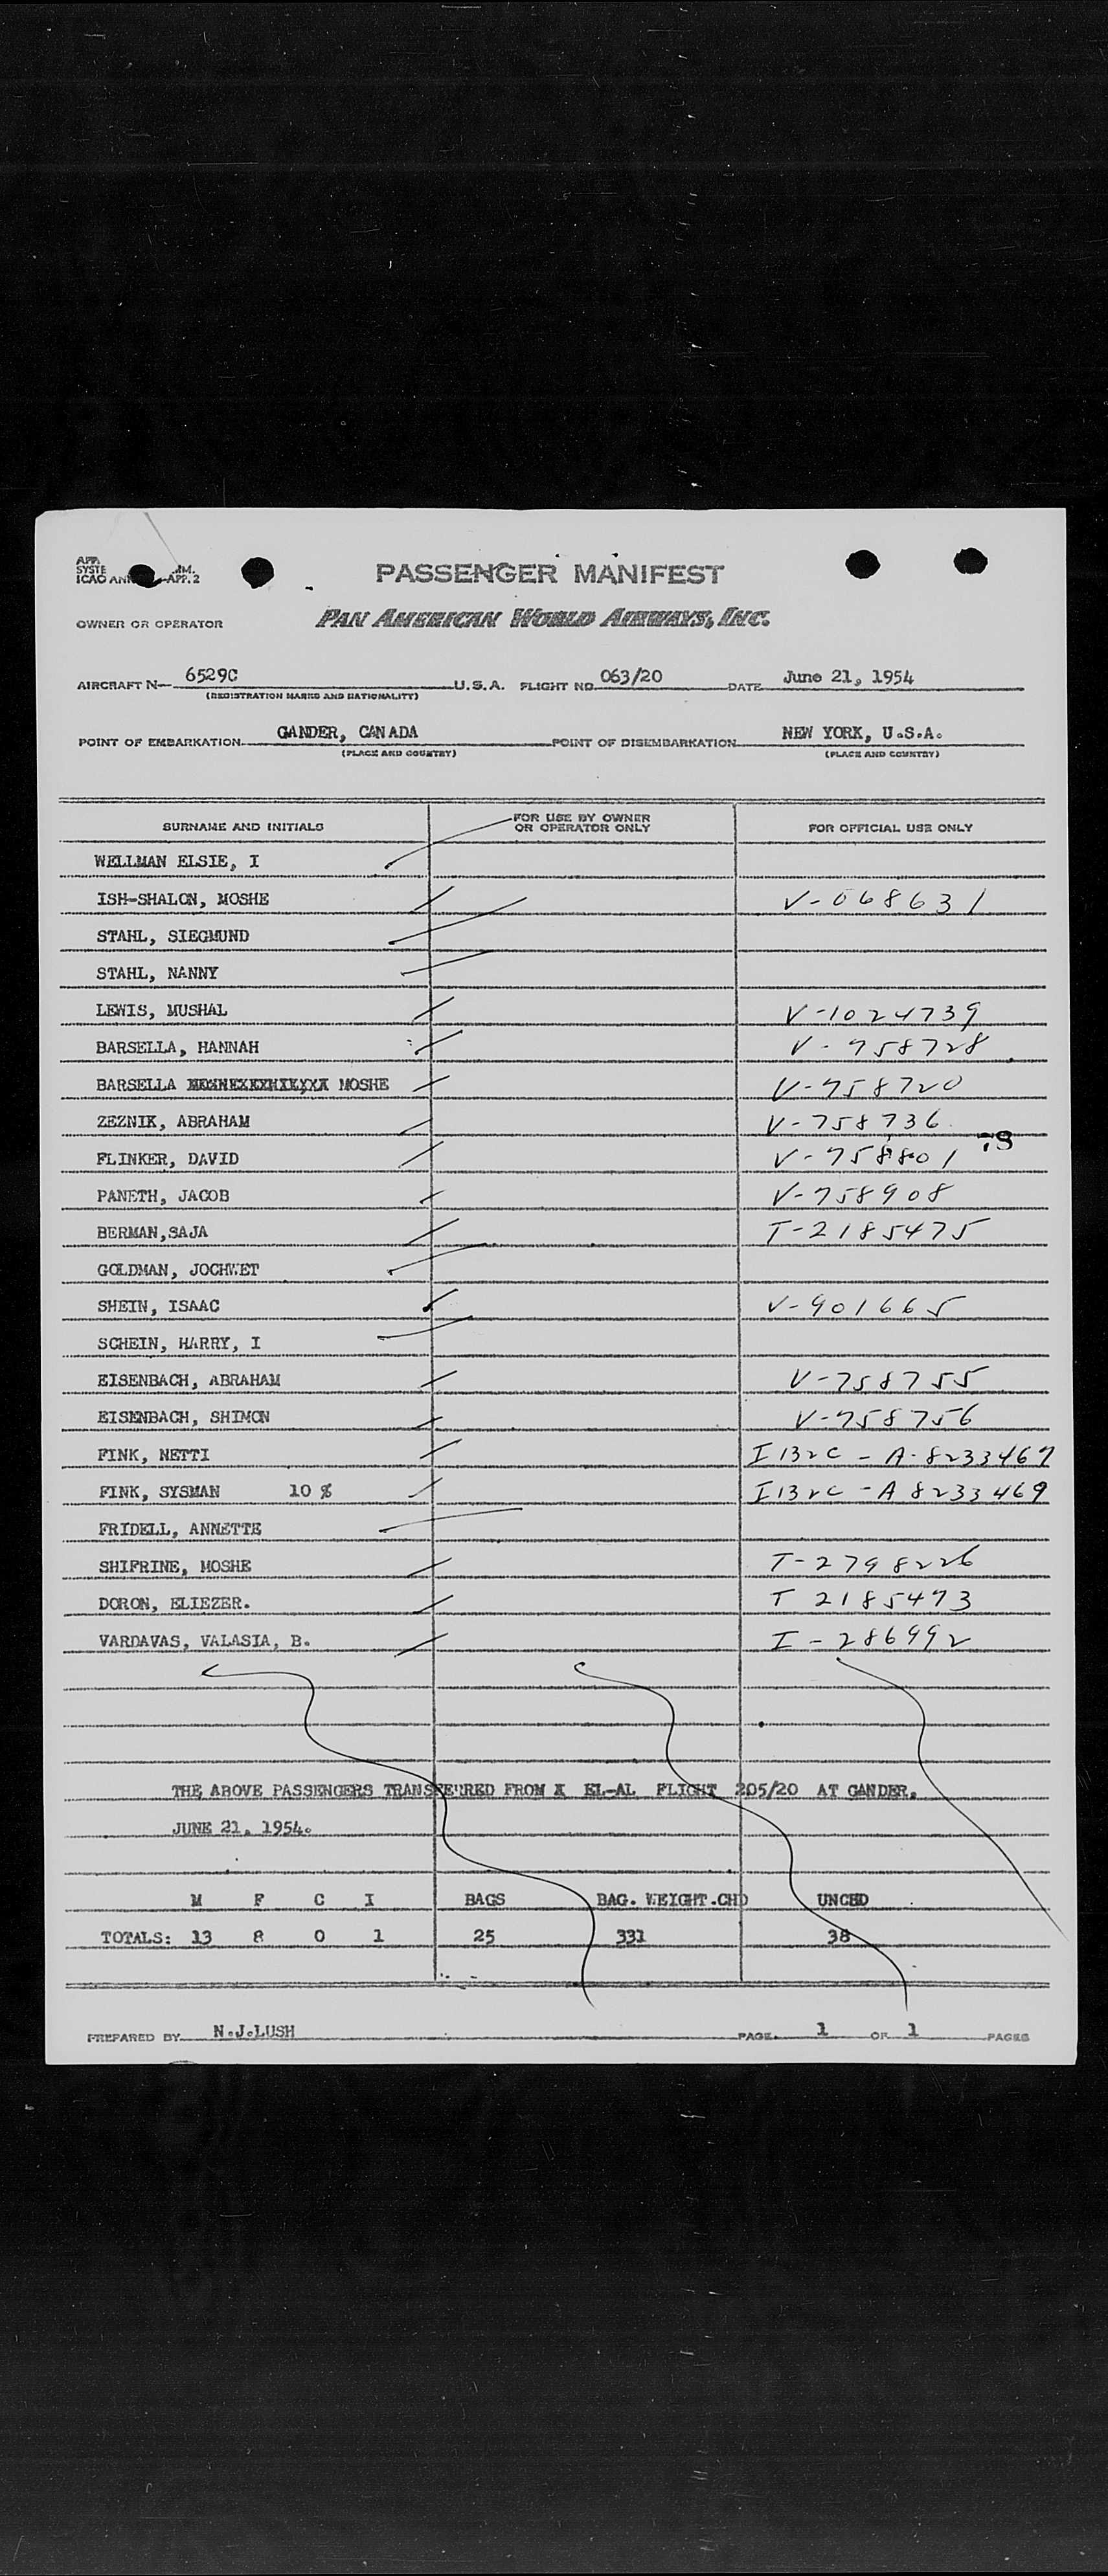 PASSENGER MANIFEST
ICAO
APP. 2
OWNER OR OPERATOR
PAN AMERICAN WORLD AIRWAYS, INC.
AIRCRAFT N— 6529C U.S.A. FLIGHT NO. 063/20 DATE June 21, 1954
(REGISTRATION MARKS AND NATIONALITY)
POINT OF EMBARKATION GANDER, CANADA POINT OF DISEMBARKATION NEW YORK, U.S.A.
(PLACE AND COUNTRY) (PLACE AND COUNTRY)
SURNAME AND INITIALS FOR USE BY OWNER OR OPERATOR ONLY FOR OFFICIAL USE ONLY
WELLMAN ELSIE, I
ISH-SHALON, MOSHE V-068631
STAHL, SIEGMUND
STAHL, NANNY
LEWIS, MUSHAL V-1024739
BARSELLA, HANNAH V-758728
BARSELLA MOSHE V-758720
ZEZNIK, ABRAHAM V-758736
78
FLINKER, DAVID V-758801
PANETH, JACOB V-758908
BERMAN,SAJA T-2185475
GOLDMAN, JOCHWET
SHEIN, ISAAC V-901665
SCHEIN, HARRY, I
EISENBACH, ABRAHAM V-758755
EISENBACH, SHIMON V-758756
FINK, NETTI I132C - A-8233467
FINK, SYSMAN 10 % I132C - A 8233469
FRIDELL, ANNETTE
SHIFRINE, MOSHE T-2798226
DORON, ELIEZER. T 2185473
VARDAVAS, VALASIA, B. I-286992
THE ABOVE PASSENGERS TRANSFERRED FROM X EL-AL FLIGHT 205/20 AT GANDER,
JUNE 21, 1954.
M F C I BAGS BAG. WEIGHT.CHD UNCHD
TOTALS: 13 8 0 1 25 331 38
PREPARED BY N.J.LUSH PAGE 1 OF 1 PAGES